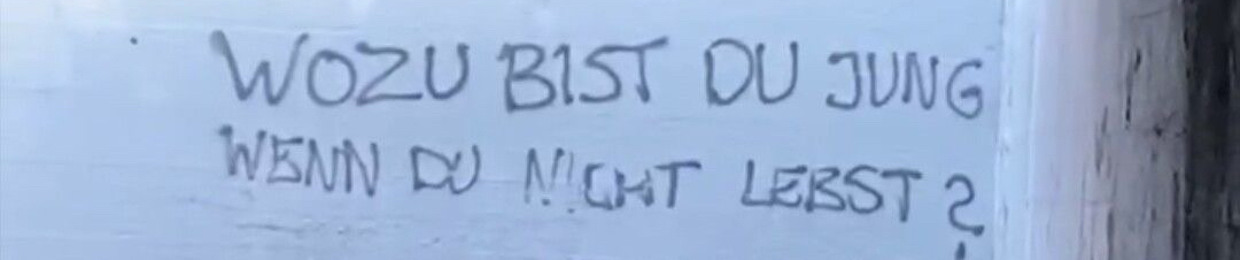 WOZU BIST DU JUNG
WENN DU NICHT LEBST?